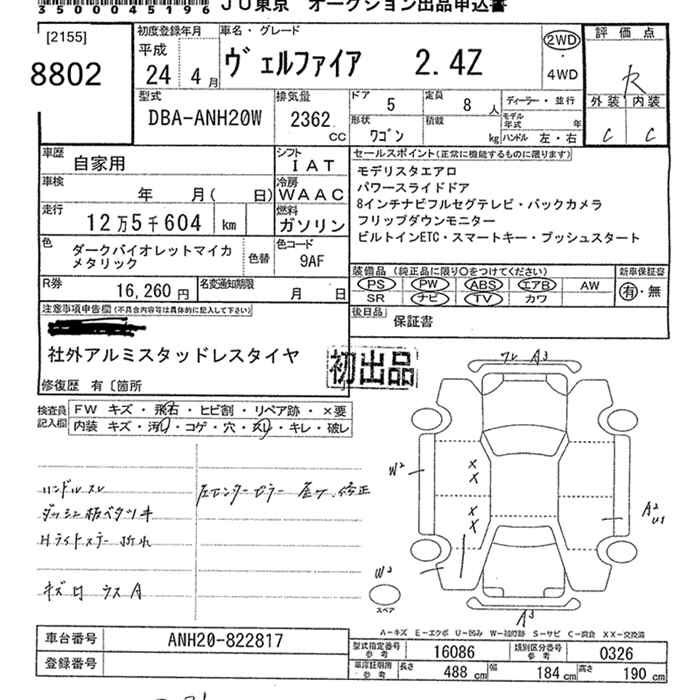 350004519 6 JU東京 オークション出品申込書
[2155]
8802
初度登録年月
平成
24年 4月
車名・グレード
ヴェルファイア 2.4Z
2WD
・
4WD
評価点
R
外装 内装
C C
型式
DBA-ANH20W
排気量
2362
CC
ドア 5
定員 8人
形状 ワゴン
積載 kg
ディーラー・並行
モデル年式 年
ハンドル 左・右
車歴
自家用
シフト
IAT
車検
年 月( 日)
冷房
WAAC
走行
12万5千604 km
燃料
ガソリン
色
ダークバイオレットマイカ
メタリック
色替
色コード
9AF
R券
16,260円
名変通知期限
月 日
セールスポイント(正常に機能するものに限ります)
モデリスタエアロ
パワースライドドア
8インチナビフルセグテレビ・バックカメラ
フリップダウンモニター
ビルトインETC・スマートキー・プッシュスタート
装備品 (純正品に限り○をつけてください)
PS PW ABS エアB AW
SR ナビ TV カワ
新車保証書
有・無
後日品
保証書
注意事項申告欄(不具合内容等は具体的に記入して下さい)
社外アルミスタッドレスタイヤ
初出品
修復歴 有〔箇所
検査員
記入欄
FW キズ・飛石・ヒビ割・リペア跡・×要
内装 キズ・汚れ・コゲ・穴・スリ・キレ・破レ
ハンドルスレ
左センターピラー 曲り、修正
ダッシュ板ベタツキ
Hライトステー折れ
キズ ウス A
フレ A3
W2
X
X
X
X
A2
U1
W3
スペア
A3
A-キズ E-エクボ U-凹み W-補修跡 S-サビ C-腐食 XX-交換済
車台番号 ANH20-822817
登録番号
型式指定番号
参考
16086
類別区分番号
参考
0326
車庫証明用
参考
長さ 488 cm 幅 184 cm 高さ 190 cm